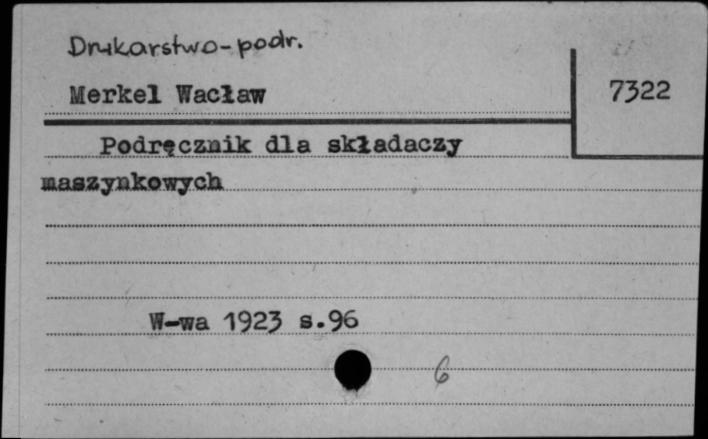 Drukarstwo-podr.
Merkel Wacław
7322
Podręcznik dla składaczy
maszynkowych
W-wa 1923 s.96
6